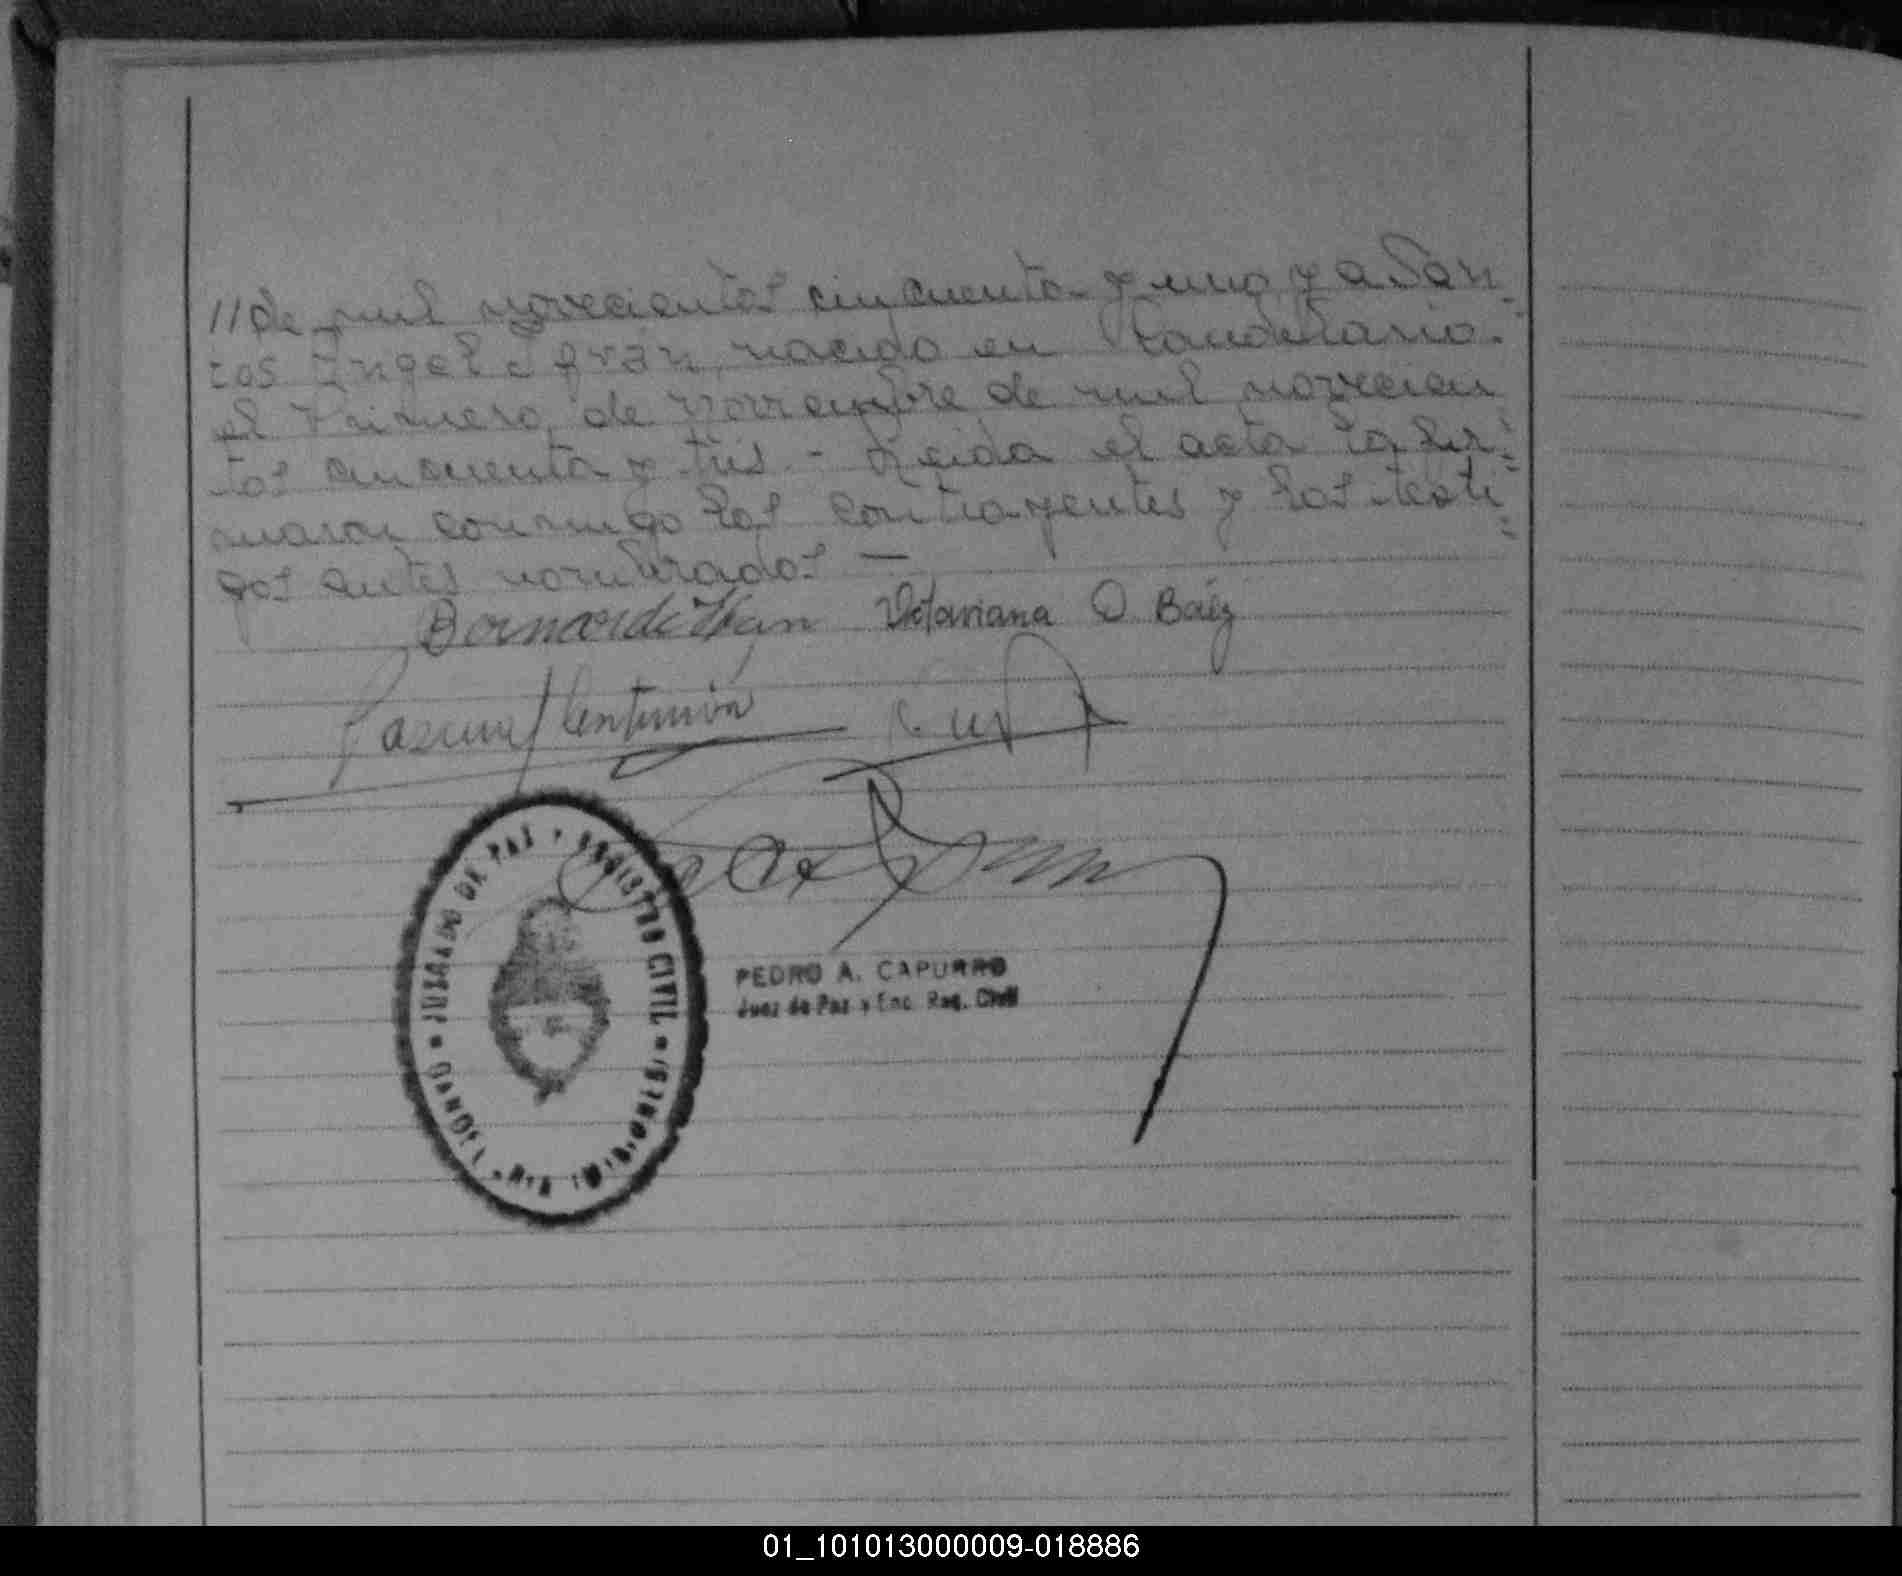 //de mil novecientos cincuenta y uno y a San
tos Ángel Efrán, nacido en Candelaria.
el Primero de noviembre de mil novecien
tos cincuenta y tres. - Leída el acta la fir=
maron conmigo los contrayentes y los testi=
gos antes nombrados. —
Bernardi Victoriana O. Baéz
Centurión
JUZGADO DE PAZ • REGISTRO CIVIL • (MISIONES)
PEDRO A. CAPURRO
Juez de Paz y Enc. Reg. Civil
01_101013000009-018886